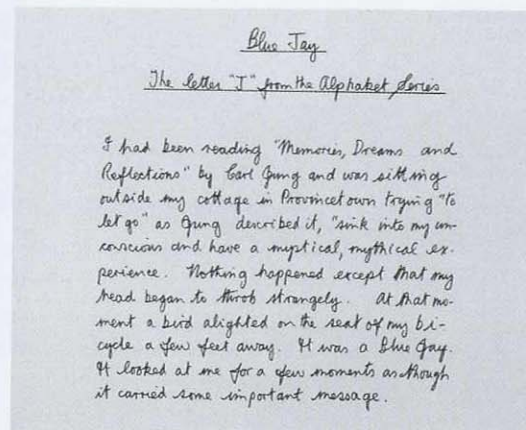 Blue Jay
The letter "J" from the Alphabet Series
I had been reading "Memories, Dreams and
Reflections" by Carl Jung and was sitting
outside my cottage in Provincetown trying "to
let go" as Jung described it, "sink into my un-
conscious and have a mystical, mythical ex-
perience. Nothing happened except that my
head began to throb strangely. At that mo-
ment a bird alighted on the seat of my bi-
cycle a few feet away. It was a Blue Jay.
It looked at me for a few moments as though
it carried some important message.